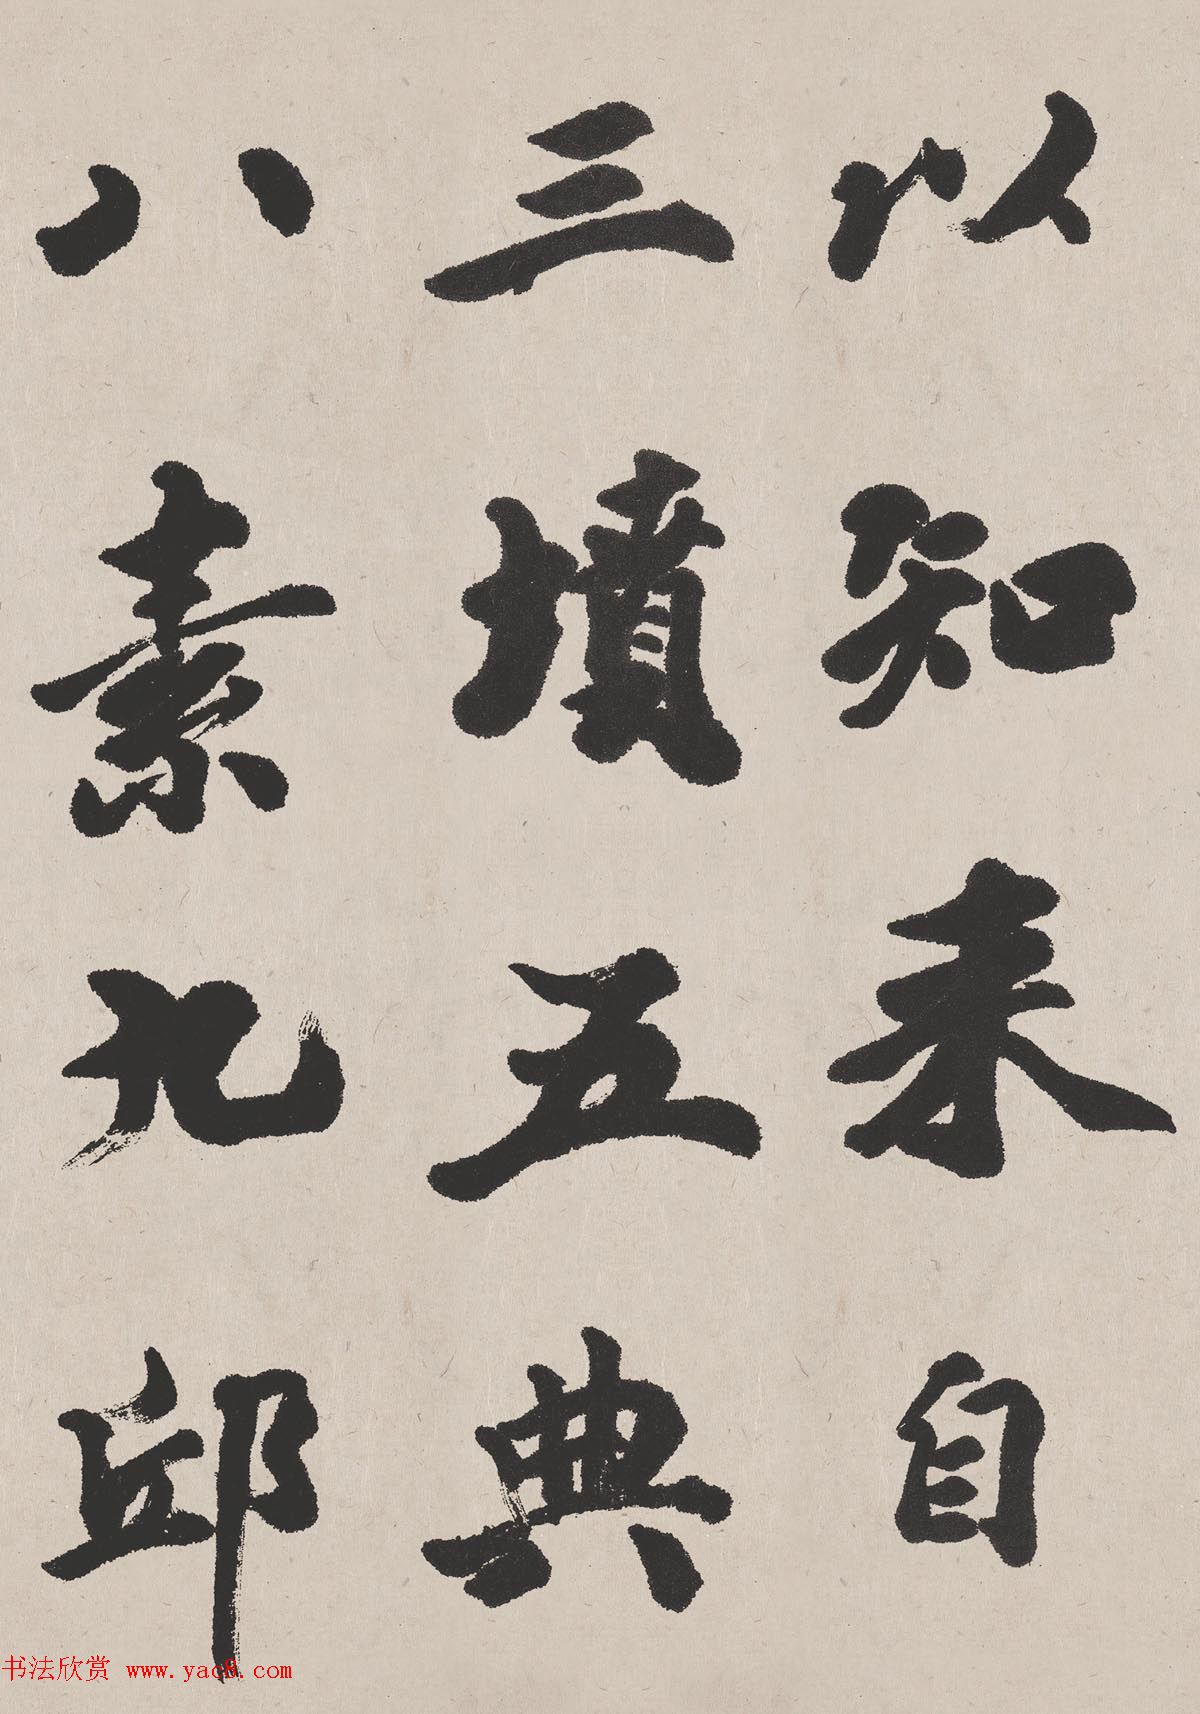 以知来自
三墳五典
八素九邱
书法欣赏 www.yac8.com